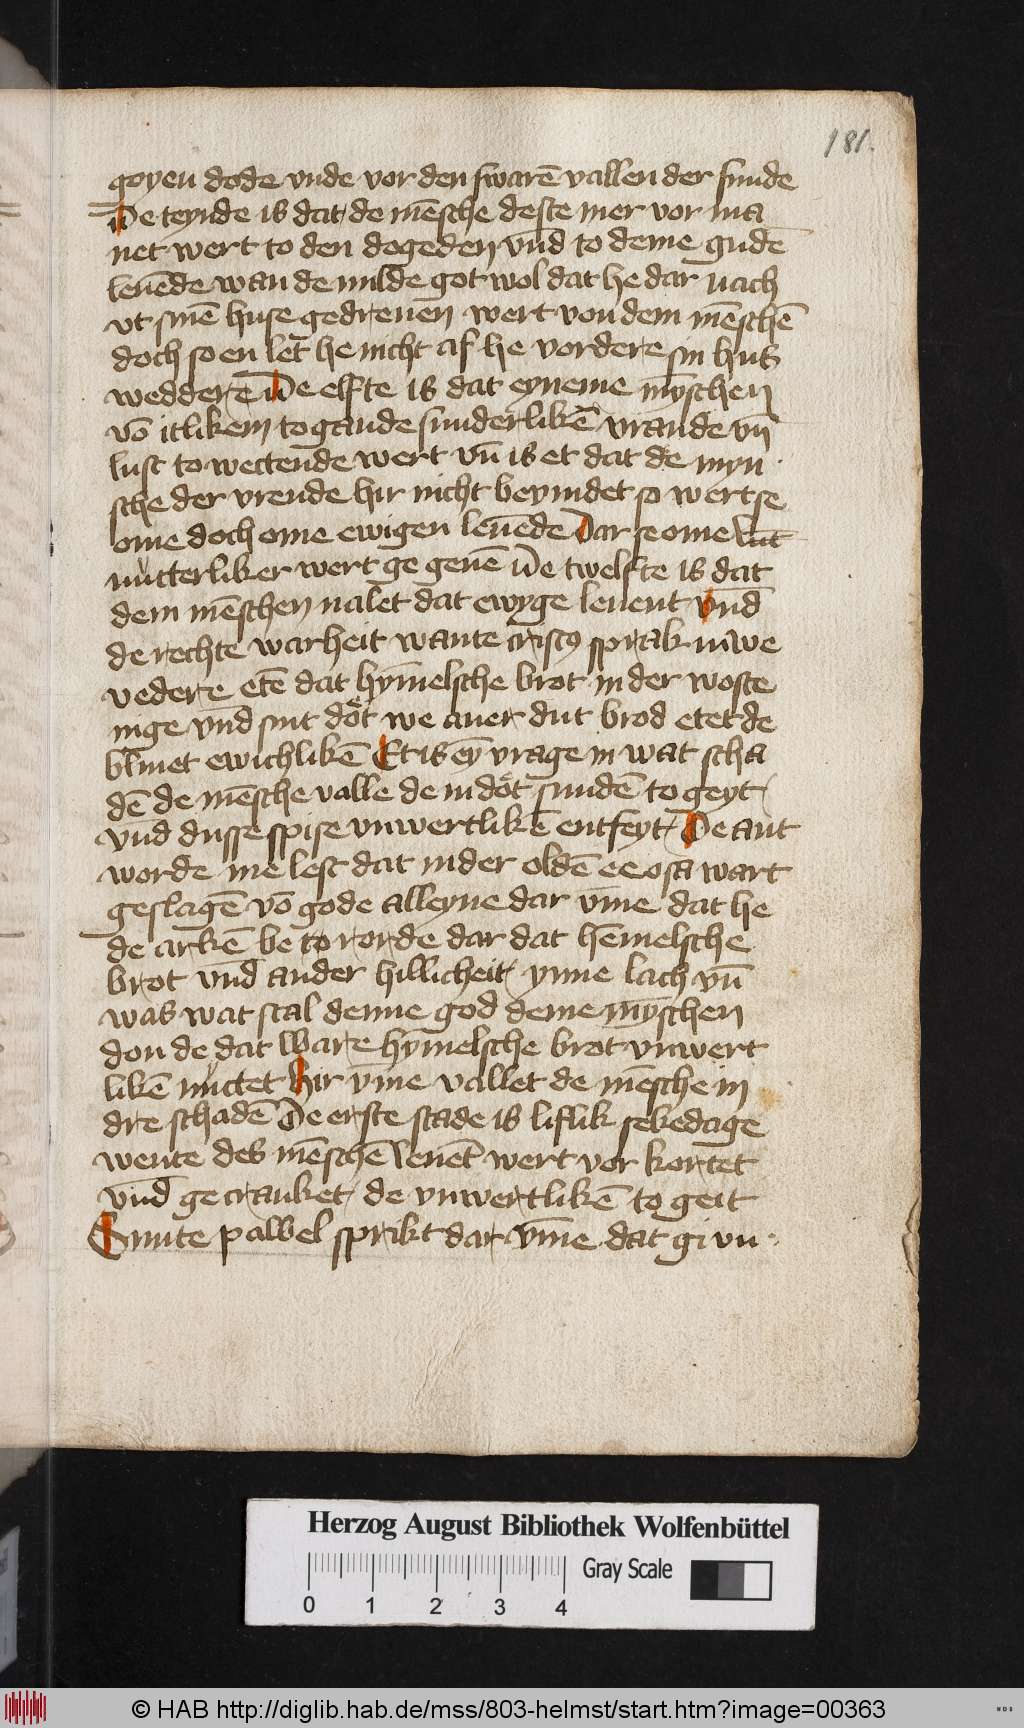 181.
goyen dode vnde vor den swarē vallen der sunde
De teynde is dat de mēsche deste mer vor ma
net wert to den dogeden vnd to deme gudē
leuēde wan de milde got wol dat he dar nach
vt sinē huse gedreuen wert von dem mēschē
doch so en let he nicht af he vordere sin hus
weddere De elfte is dat eyneme myschen
vō itlikem togande sunderlikē vraude vn̄
lust to wectende wert vn̄ is et dat de myn
sche der vrende hir nicht bevindet so wert se
ome doch ome ewigen leuēde Dar se ome
nůtterliker wert ge geuē De twelfte is dat
dem mēschen nalet dat ewyge leuent vnd
de rechte warheit wante cristꝰ sprak iuwe
vedere etē dat hȳmelsche brot in der woste
inge vnd sint dot we auer dut brod etet de
bliuet ewichlikē Et is eȳ vrage in wat scha
dē de mēsche valle de in dot sundē to geyt
vnd dusse spise vnwertlikē entfeyt De ant
worde me lest dat in der oldē ee osa wart
geslagē vō gode alleyne dar vm̄e dat he
de arkē be to rorde dar dat hēmelsche
brot vnd ander hillicheit ynne lach vn̄
was wat scal denne god deme myschen
don de dat ware hȳmelsche brot vnwert
likē nůttet Hir vm̄e vallet de mēsche in
dre schadē De erste scade is liflik sekedage
wente des mēschē leuēt wert vor kortet
vnd gecranket de vnwertlikē to geit
Sunte pawel sprikt dar vm̄e dat gi vn
Herzog August Bibliothek Wolfenbüttel
Gray Scale
0 1 2 3 4
© HAB http://diglib.hab.de/mss/803-helmst/start.htm?image=00363